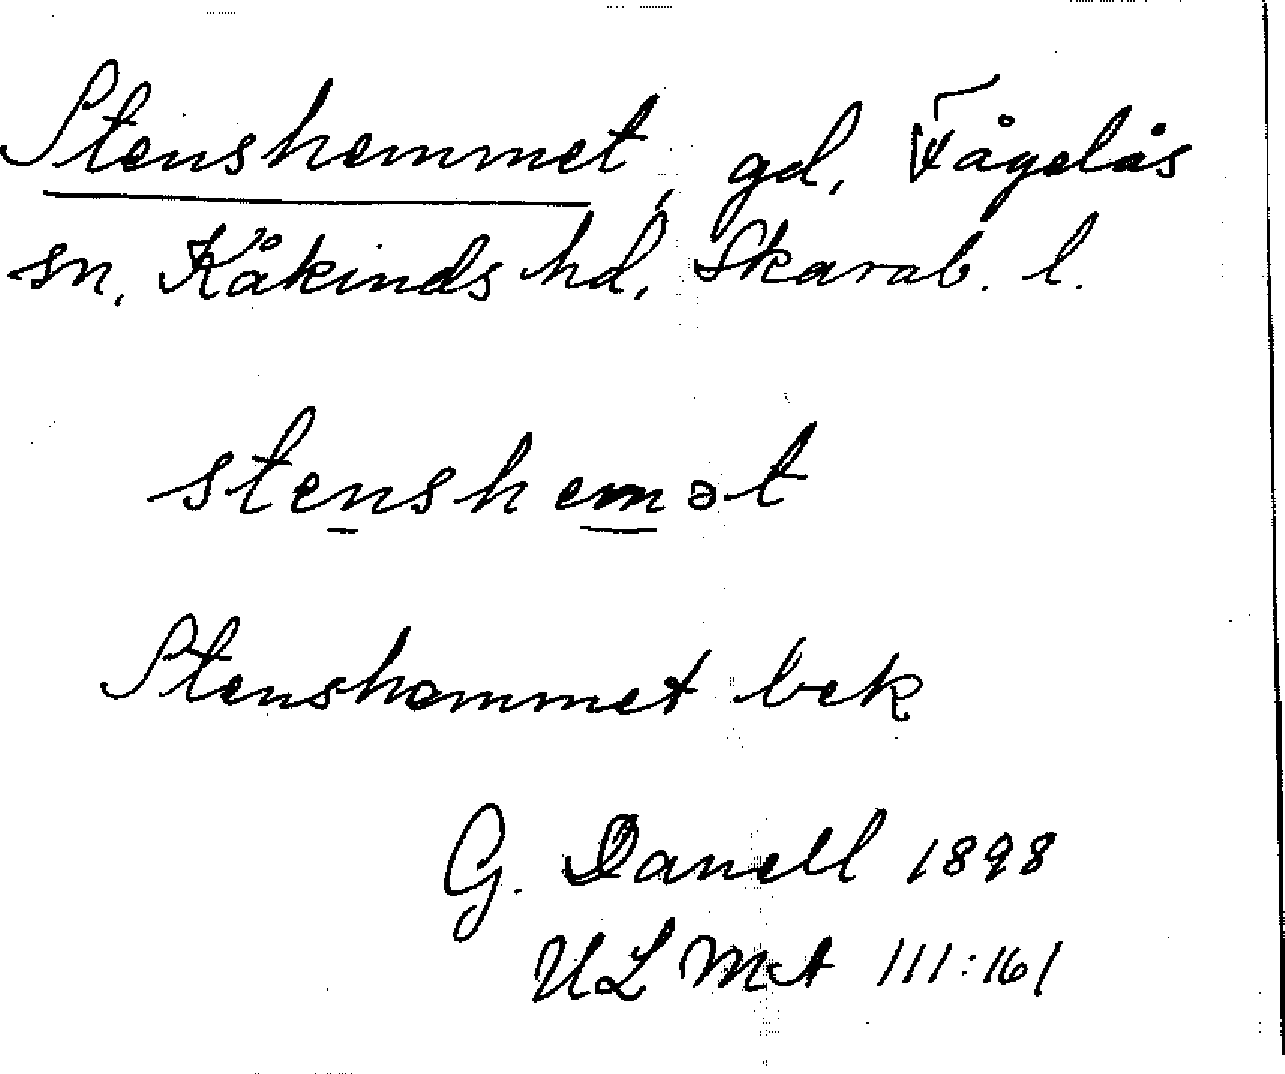 Stenshemmet, gd, Fågelås
sn, Kåkinds hd, Skarab. l.
stenshemət
Stenshemmet bek
G. Danell 1898
ULMA 111:161